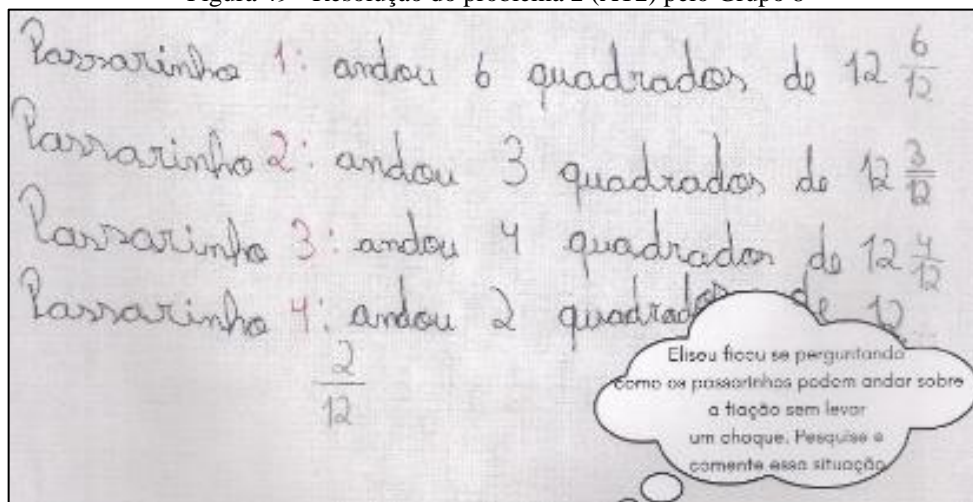 Passarinho 1: andou 6 quadrados de 12 6/12
Passarinho 2: andou 3 quadrados de 12 3/12
Passarinho 3: andou 4 quadrados de 12 4/12
Passarinho 4: andou 2 quadrados de 12
2/12
Elisou ficou se perguntando
como os passarinhos podem andar sobre
a fiação sem levar
um choque. Pesquise e
comente essa situação